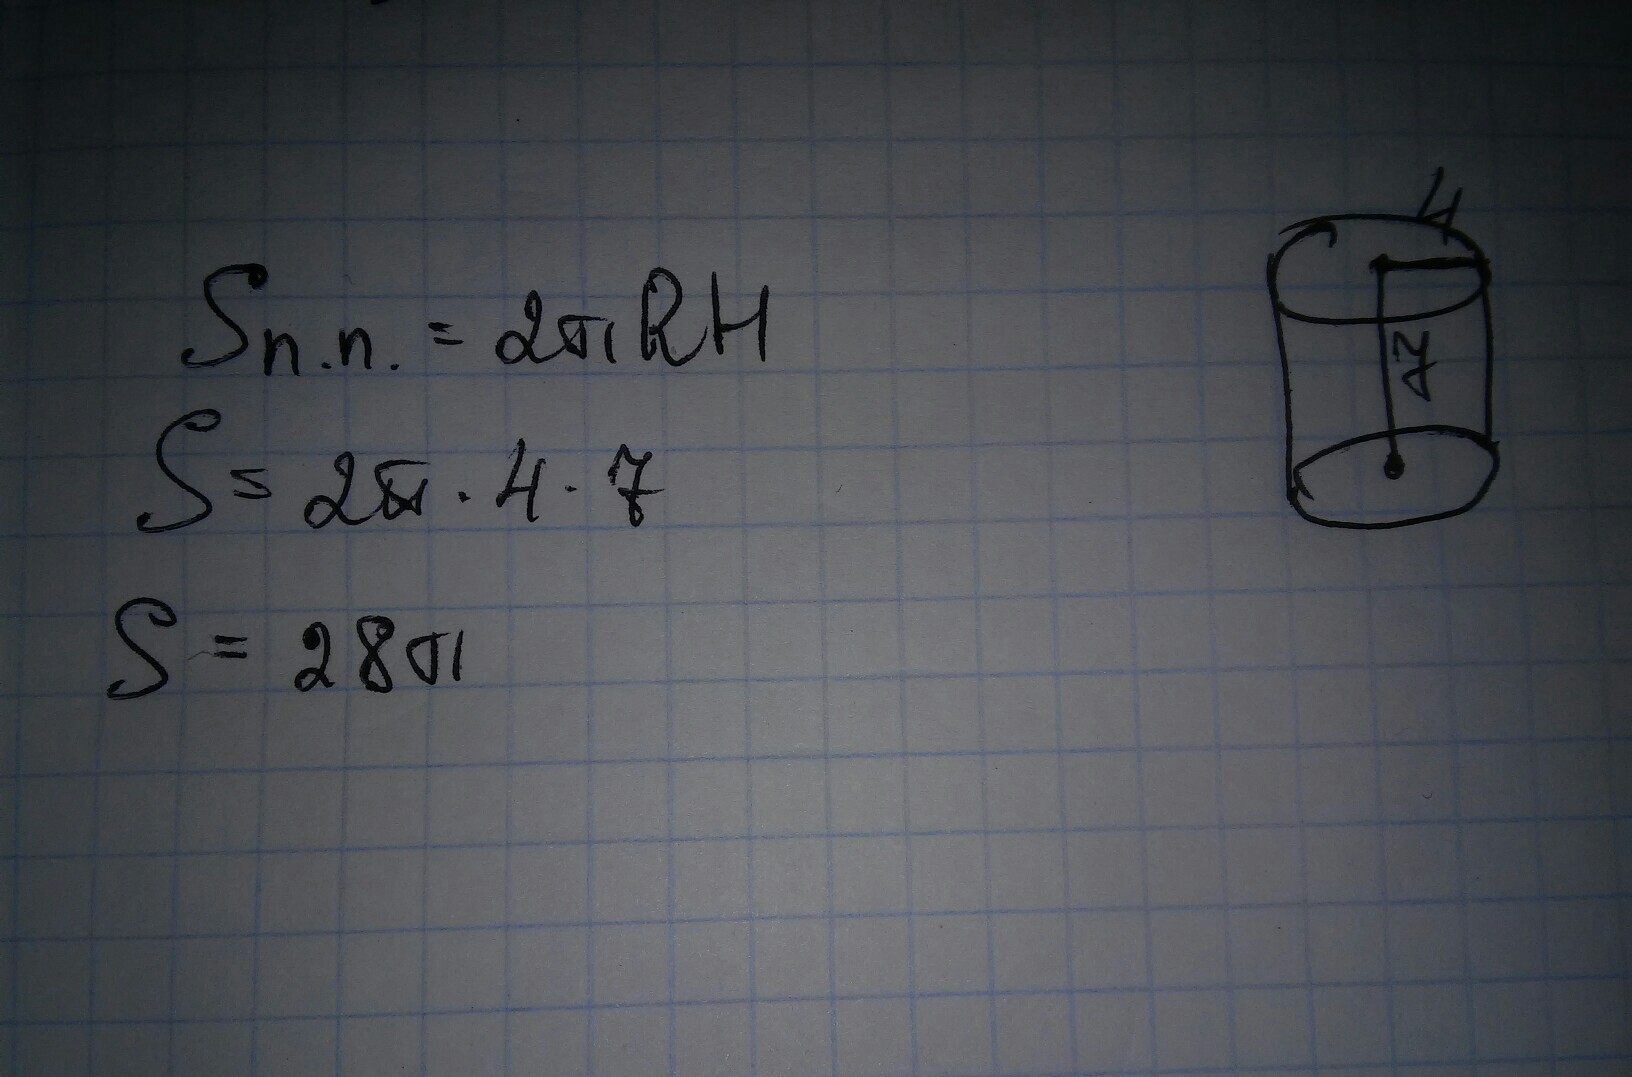 Sп.п. = 2πRH
S = 2π · 4 · 7
S = 28π
4
7